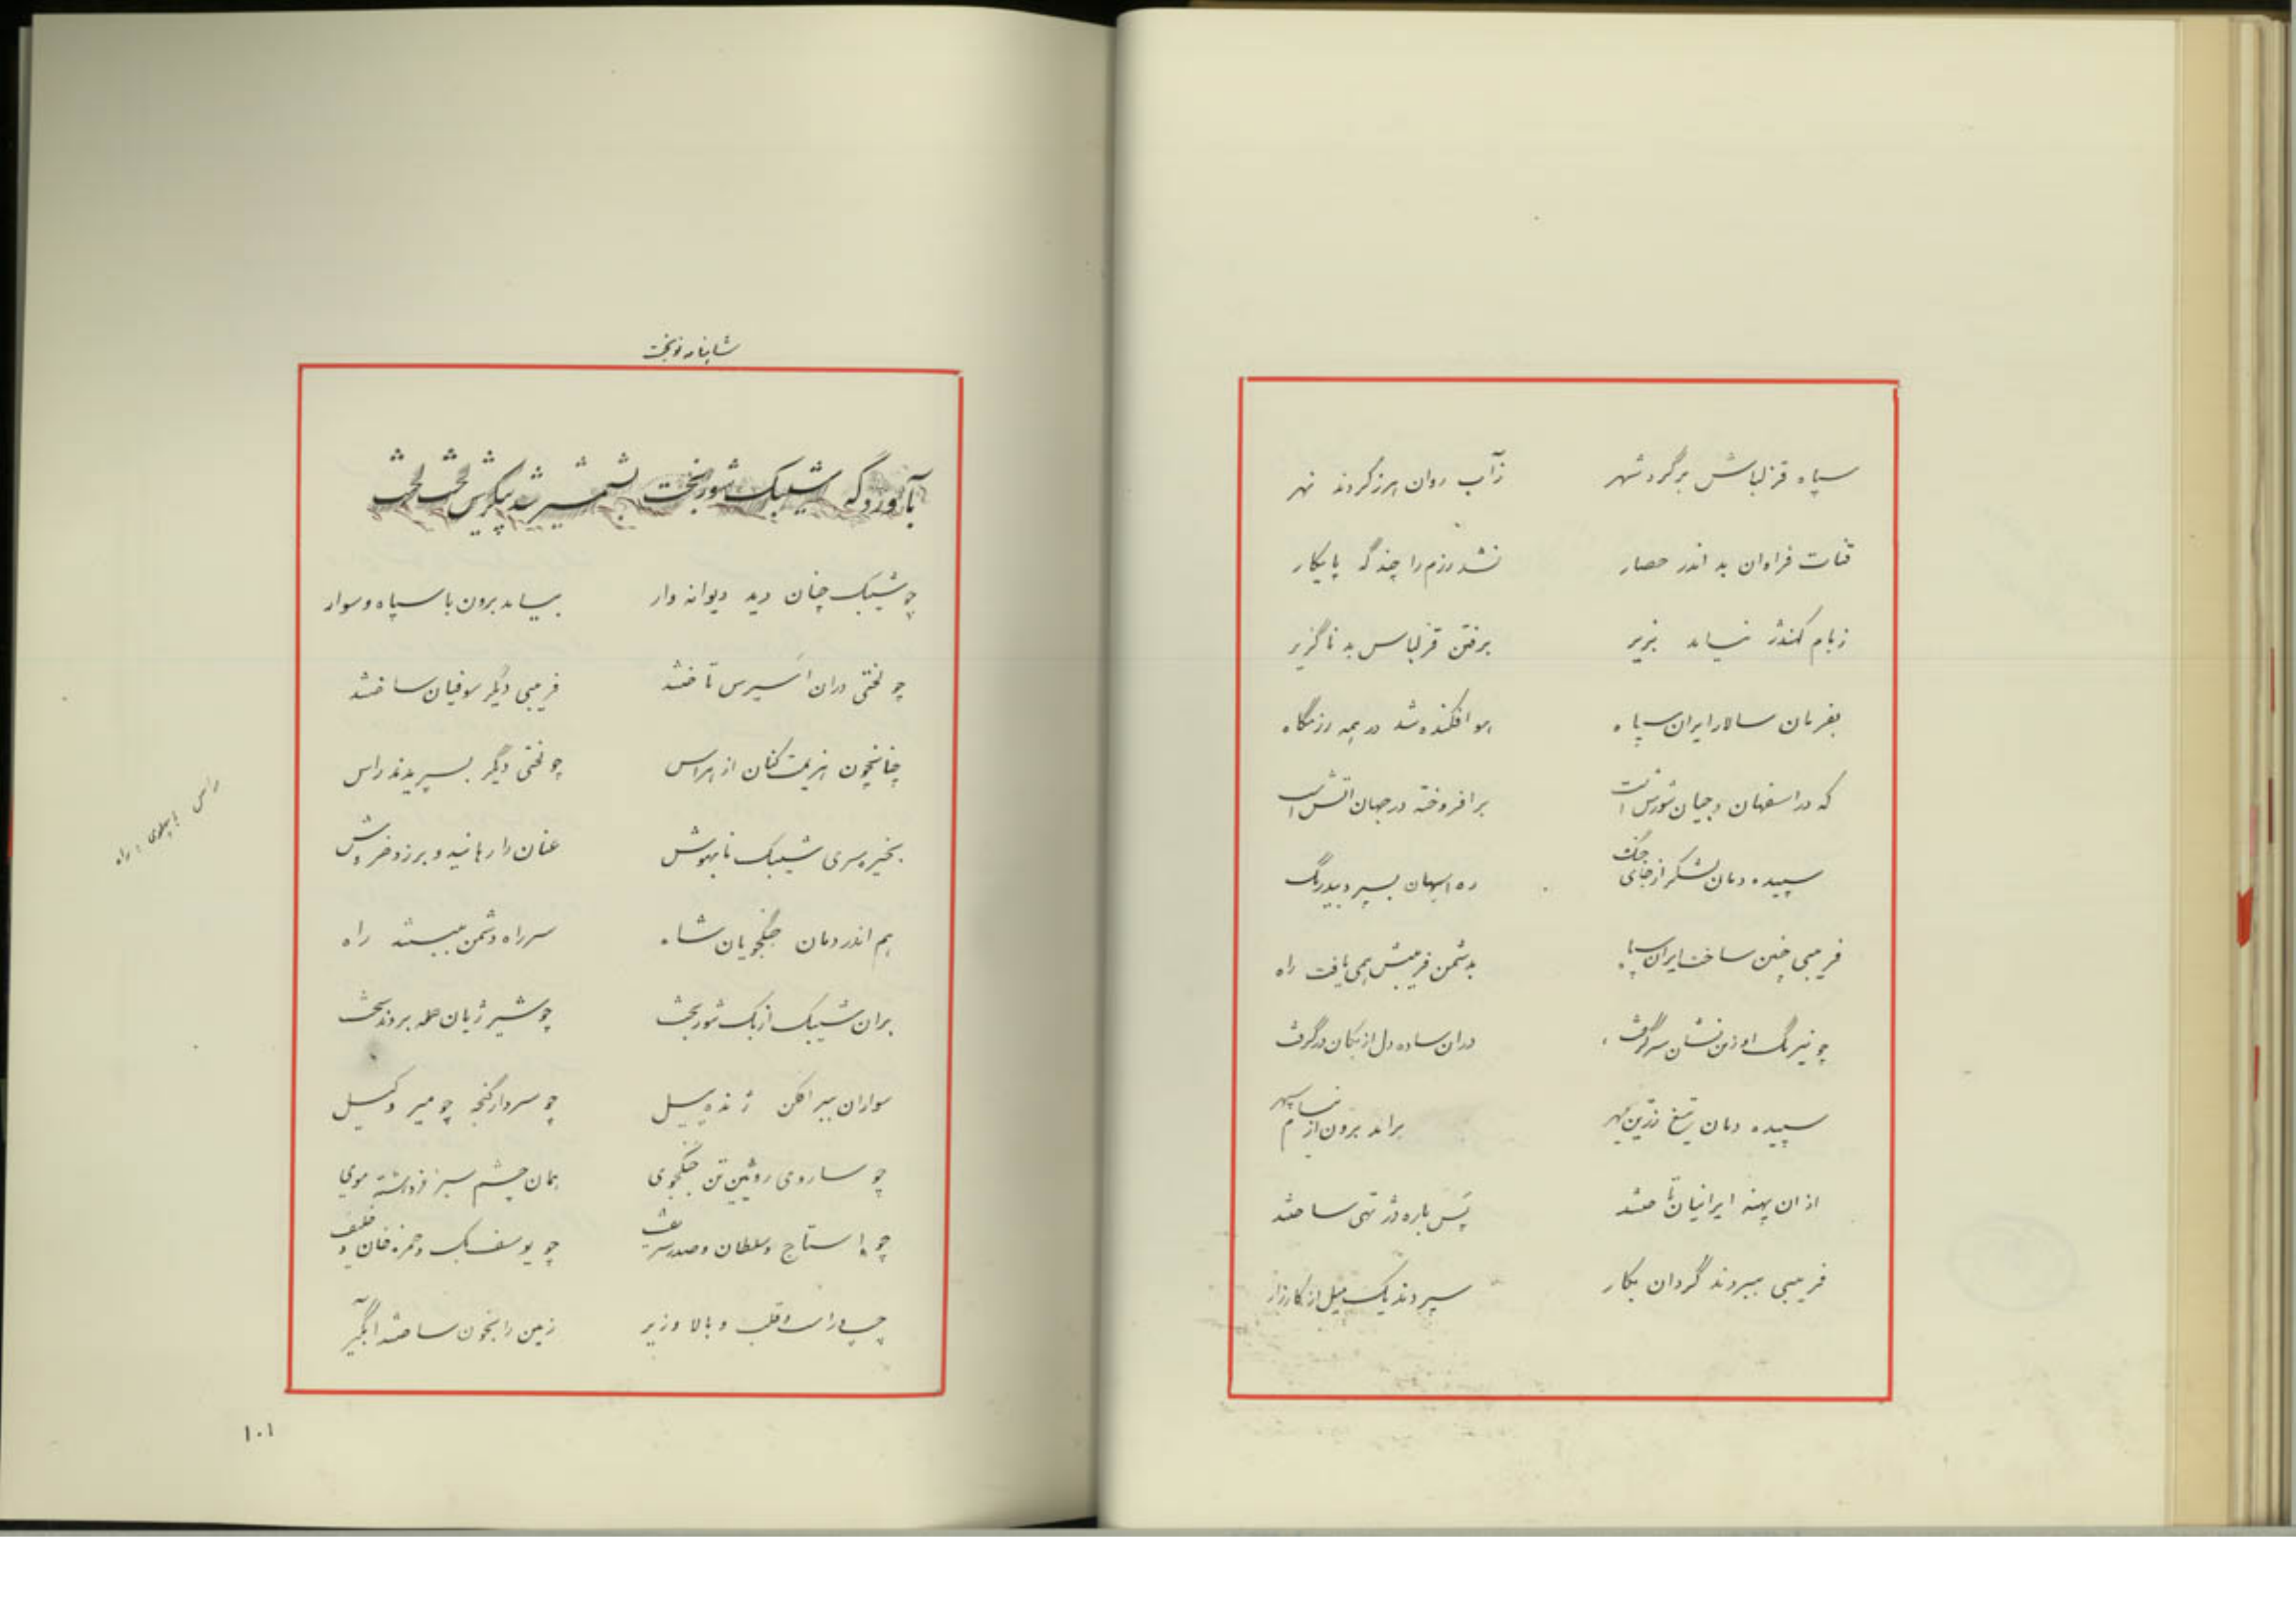 سپاه قزلباش برگرد شهر
زآب روان هرز کردند نهر
قنات فراوان بد اندر حصار
نشد رزم را چندگه پایکار
زبام کهندژ نیامد بزیر
برفتن قزلباس بد ناگزیر
بفرمان سالار ایران سپاه
هو افکنده شد در همه رزمگاه
که در اسفهان و جیان شورش است
برافروخته در جهان آتش است
سپیده دمان لشکر از جای جنگ
ره اسپهان بسپرد بیدرنگ
فریبی چنین ساخت ایران سپاه
بدشمن فریبش همی یافت راه
چو نیرنگ او زن نشان سرگرفت
دران ساده دل ازبکان درگرفت
سپیده دمان تیغ زرین مهر
براند برون از نیام سپهر
از ان پهنه ایرانیان تاختند
پس باره دژ تهی ساختند
فریبی ببردند گردان بکار
سپردند یک میل از کارزار
شاهنامه نوبخت
بآوردگه شیبک شوربخت بشمشیر شد پیکرش لخت لخت
چو شیبک چنان دید دیوانه وار
بیامد برون با سپاه و سوار
چو لختی دران اسپرس تاختند
فریبی دیگر سوفیان ساختند
چنانچون هزیمت کنان از هراس
چو لختی دیگر بسپریدند راس
بخیره سری شیبک نابهوش
عنان را رهانید و برزد خروش
هم اندر دمان جنگجویان شاه
سر راه دشمن ببستند راه
بران شیبک ازبک شوربخت
چو شیر ژیان حمله بردند سخت
سواران ببر افکن ژنده پیل
چو سردار گنجه چو میر وکیل
چو ساروی روئین تن جنگجوی
همان چشم سبز فروهشته موی
چو استاج و سلطان و صدر شریف
چو یوسف بک و حمزه خان و خلیف
چپ و راست و قلب و بالا و زیر
زمین را بخون ساختند آبگیر
راس بپهلوی : راه
۱۰۱